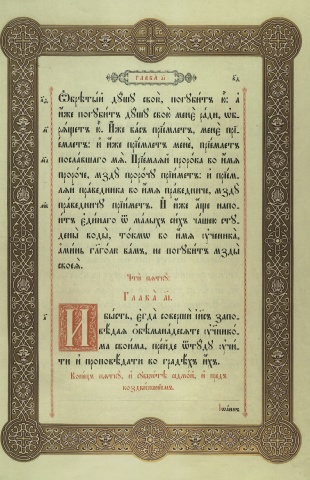 ГЛАВА І҃
Ѡбрѣтый дꙋшꙋ свою, погꙋбитъ ю҆: а҆
и҆́же погꙋбитъ дꙋшꙋ свою менє̀ ради, ѡ҆б-
рѧщетъ ю҆. И҆́же васъ прїемлетъ, менє̀ прї-
емлетъ: и҆ и҆́же прїемлетъ менє̀, прїемлетъ
пославшаго мѧ̀. Прїемлѧй пророка во и҆мѧ
пророче, мздꙋ пророчꙋ прїиметъ: и҆ прїем-
лѧй праведника во и҆мѧ праведниче, мздꙋ
праведничꙋ прїиметъ. И҆ и҆́же а҆ще напо-
итъ є҆динаго ѿ малыхъ сихъ чашею стꙋ-
дены воды, токмѡ во и҆мѧ ᲂу҆ченика,
а҆минь гл҃голю вамъ, не погꙋбитъ мзды
своеѧ̀.
Чтѝ пѧткꙋ:
Глава̀ а҃і.
И҆ бысть, є҆гда̀ совершѝ і҆и҃съ запо-
вѣдаѧ ѻ҆бѣманадесѧте ᲂу҆ченико-
ма своима, прейде ѿтꙋдꙋ ᲂу҆чи-
ти и҆ проповѣдати во градѣхъ и҆́хъ.
Конецъ пѧткꙋ, и҆ сꙋбботѣ седмой, и҆ пред
воздвиженїемъ.